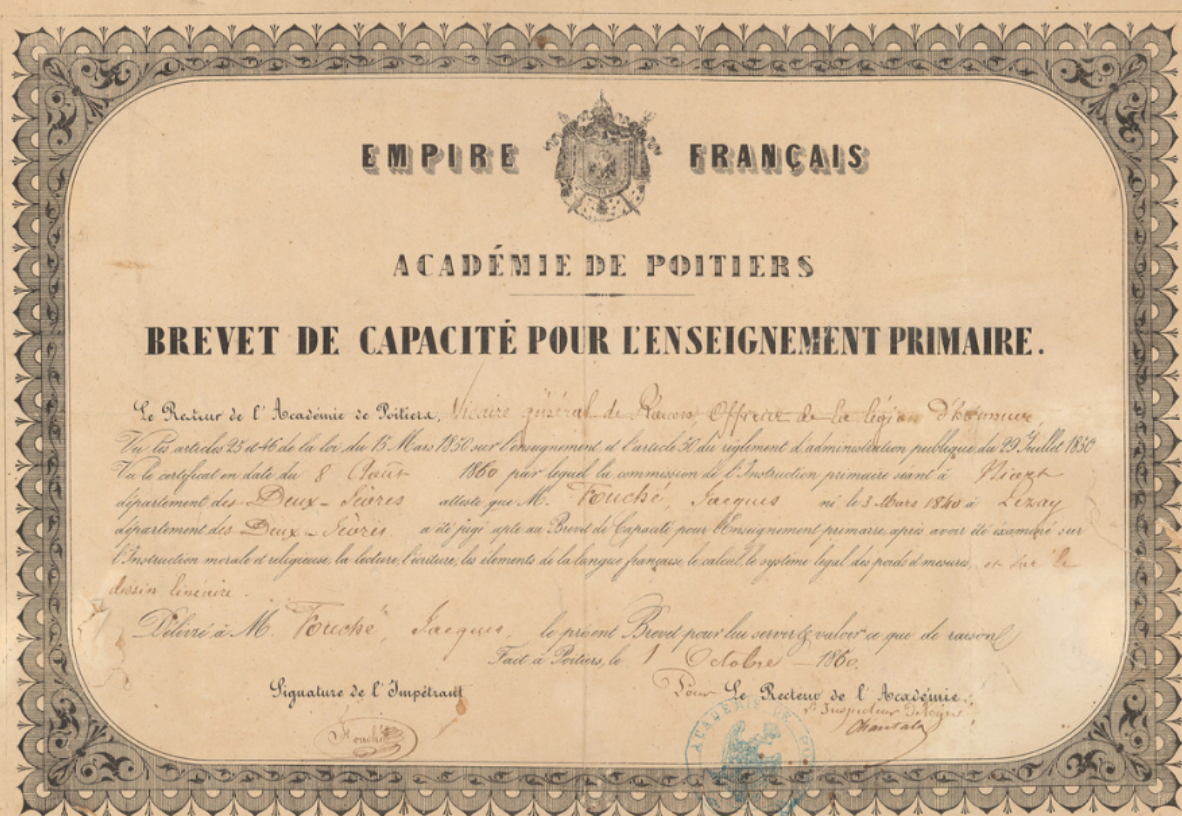 EMPIRE FRANÇAIS
ACADÉMIE DE POITIERS
BREVET DE CAPACITÉ POUR L'ENSEIGNEMENT PRIMAIRE.
Le Recteur de l'Académie de Poitiers, Vicaire général de Officier de la légion d'honneur
Vu les articles 25 et 46 de la loi du 15 Mars 1850 sur l'enseignement et l'article 50 du règlement d'administration publique du 29 Juillet 1850
Vu le certificat en date du 8 Août 1860 par lequel la commission de l'Instruction primaire séant à Niort
département des Deux-Sèvres atteste que M. Fouché, Jacques né le 3 Mars 1840 à Lezay
département des Deux-Sèvres a été jugé apte au Brevet de Capacité pour l'Enseignement primaire, après avoir été examiné sur
l'Instruction morale et religieuse, la lecture, l'écriture, les éléments de la langue française, le calcul, le système légal des poids et mesures, et sur le
dessin linéaire.
Délivré à M. Fouché, Jacques, le présent Brevet pour lui servir & valoir ce que de raison
Fait à Poitiers, le 1 Octobre 1860.
Signature de l'Impétrant Pour Le Recteur de l'Académie.
l'Inspecteur Délégué,
Fouché
ACADÉMIE DE PO